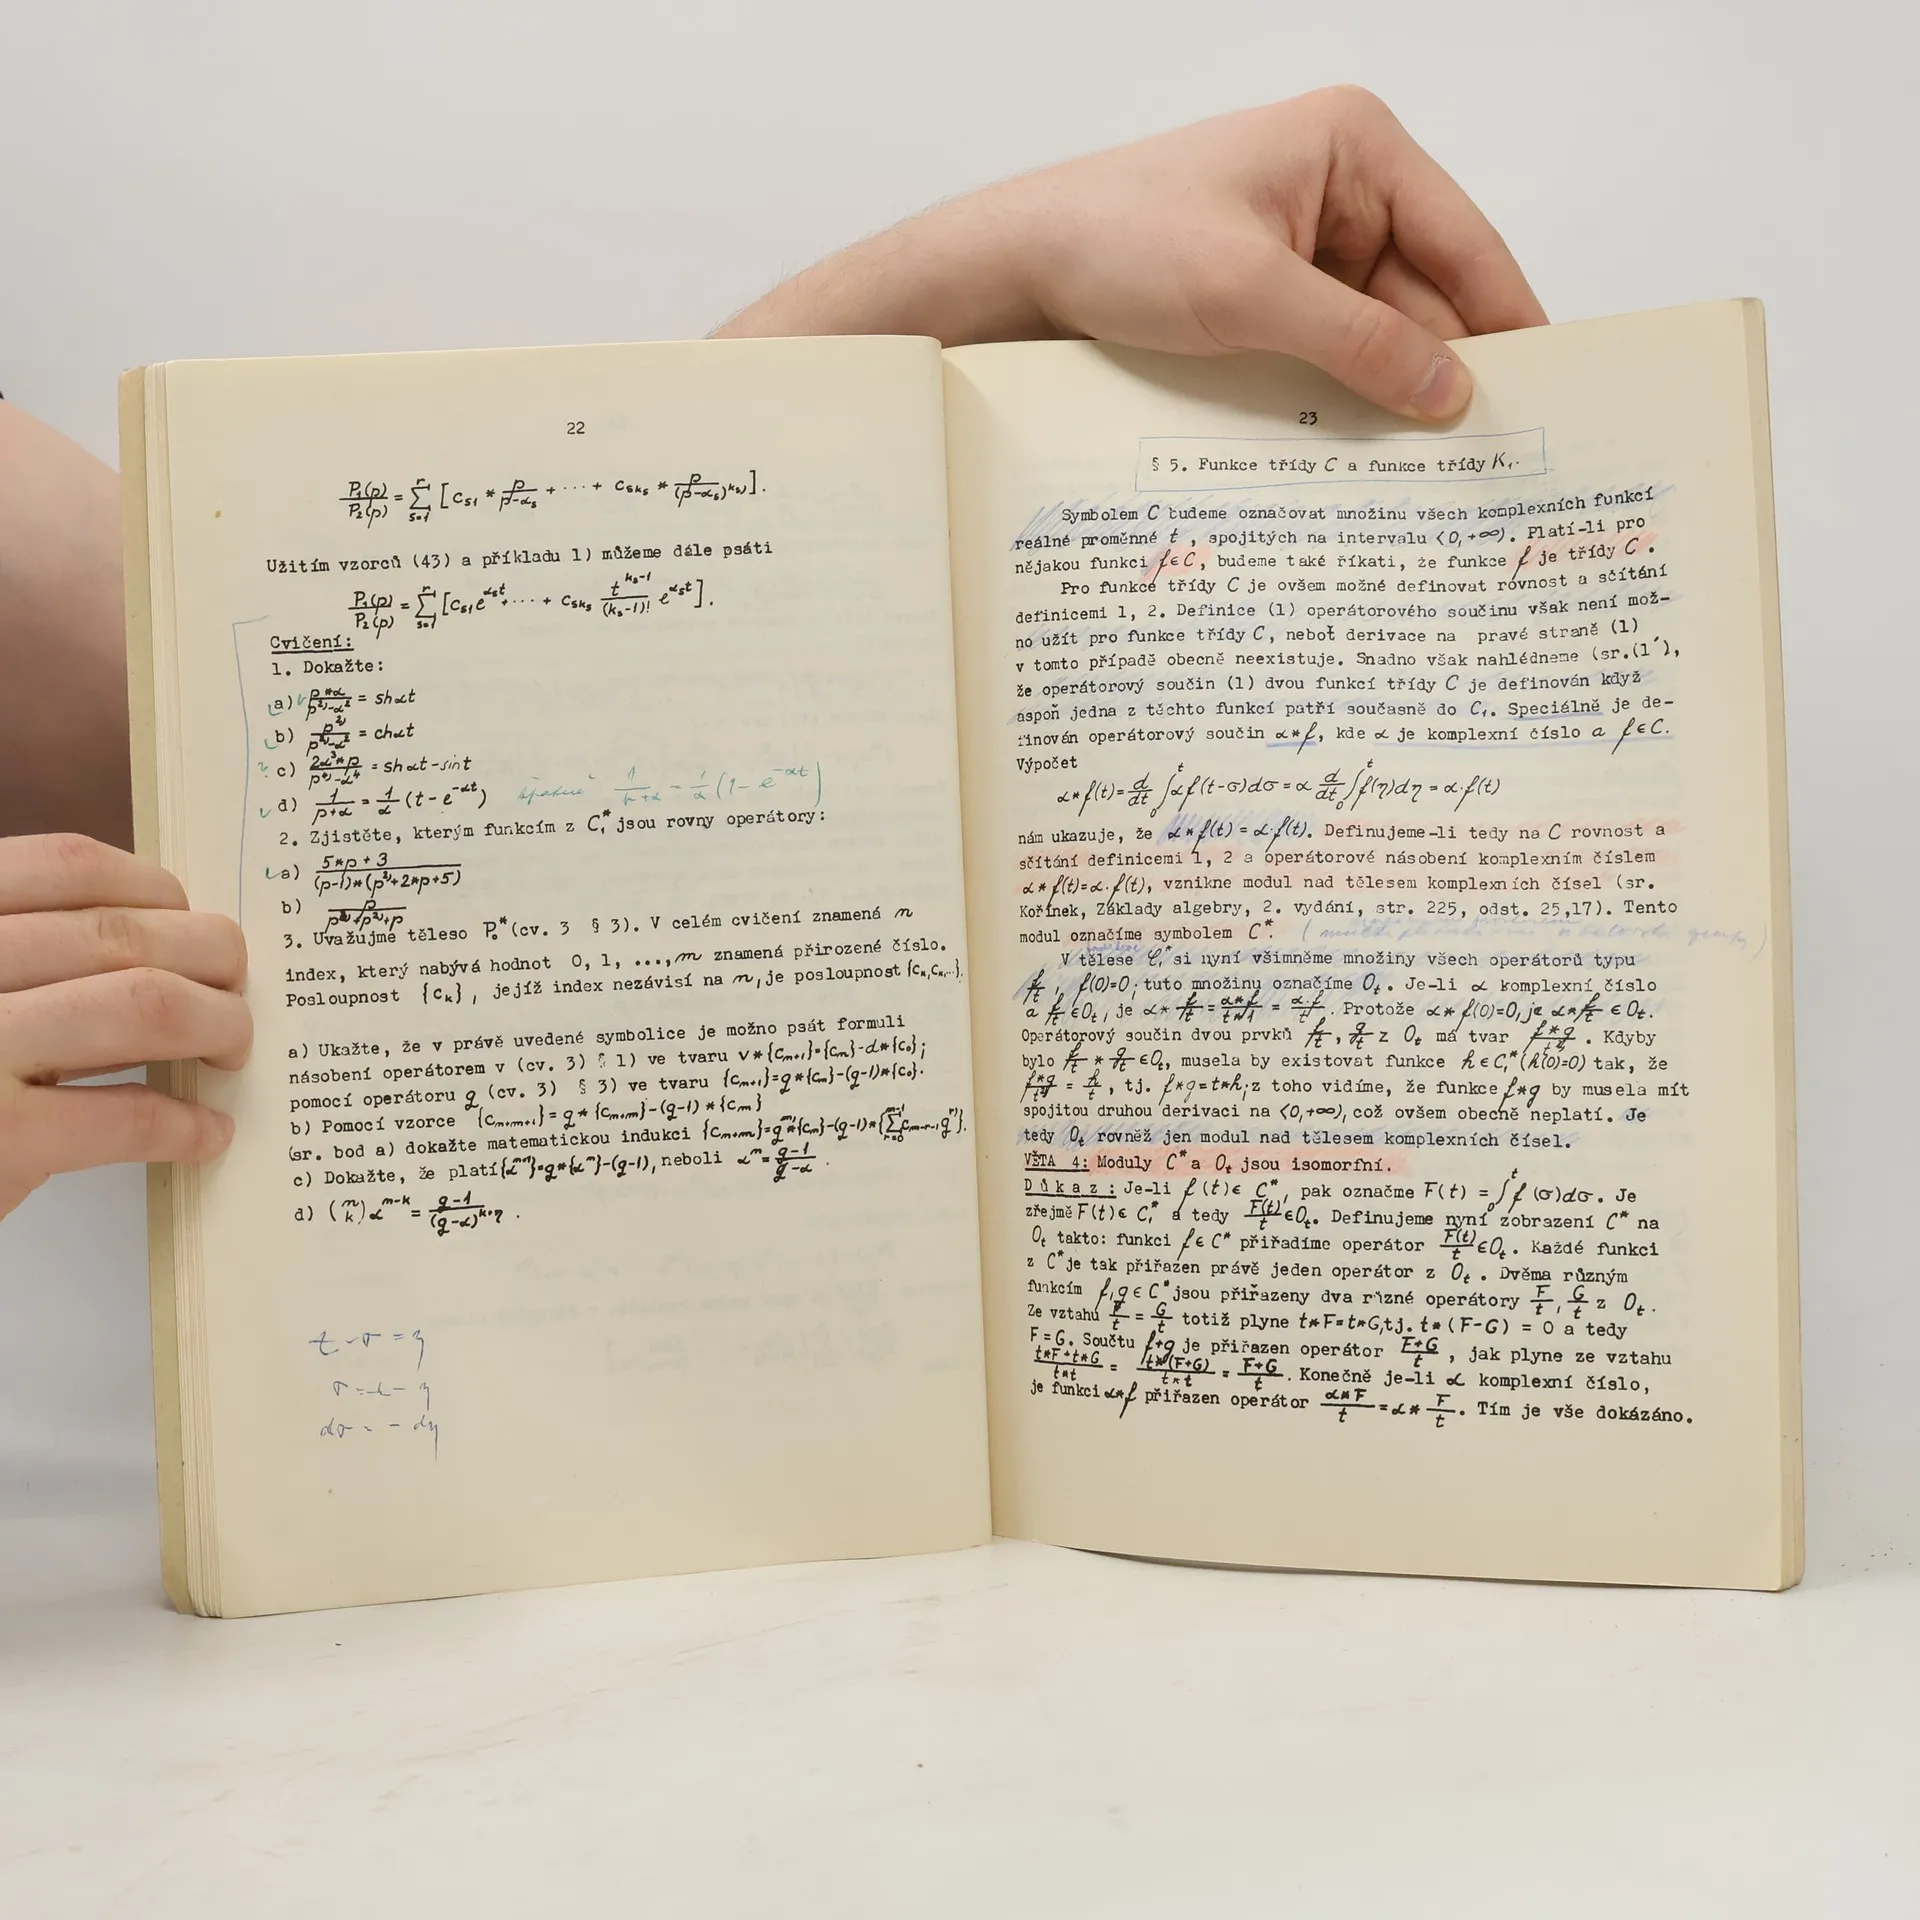 22
P₁(p)/P₂(p) = Σ_{s=1}^{r} [c_{s1} * p/(p-α_s) + ··· + c_{sk_s} * p/(p-α_s)^{k_s)}].
Užitím vzorců (43) a příkladu 1) můžeme dále psáti
P₁(p)/P₂(p) = Σ_{s=1}^{r} [c_{s1} e^{α_s t} + ··· + c_{sk_s} t^{k_s-1}/(k_s-1)! e^{α_s t}].
Cvičení:
1. Dokažte:
a) p*α/(p²⁾-α²) = shαt
b) p²⁾/(p²⁾-α²) = chαt
c) 2α³*p/(p⁴⁾-α⁴) = shαt-sint
d) 1/(p+α) = 1/α (t-e^{-αt}) 1/(p+α) = 1/α (1-e^{-αt})
2. Zjistěte, kterým funkcím z C₁* jsou rovny operátory:
a) (5*p+3)/((p-1)*(p²⁾+2*p+5))
b)
3. Uvažujme těleso P₀* (cv. 3 § 3). V celém cvičení znamená n
index, který nabývá hodnot 0, 1, ...,m znamená přirozené číslo.
Posloupnost {c_k}, jejíž index nezávisí na n, je posloupnost {c_k,c_k,...}.
a) Ukažte, že v právě uvedené symbolice je možno psát formuli
násobení operátorem v (cv. 3) § 1) ve tvaru v*{c_{n+1}}={c_n}-d*{c₀};
pomocí operátoru g (cv. 3) § 3) ve tvaru {c_{n+1}}=g*{c_n}-(g-1)*{c₀}.
b) Pomocí vzorce {c_{n+m+1}}=g*{c_{n+m}}-(g-1)*{c_m}
(sr. bod a) dokažte matematickou indukci {c_{n+m}}=g^{m)}*{c_n}-(g-1)*{Σ_{r=0}^{m-1} c_{m-r-1} g^{r)}}.
c) Dokažte, že platí {α^{n+1}}=g*{α^n}-(g-1), neboli α^n = (g-1)/(g-α).
d) (n k) α^{n-k} = (g-1)/(g-α)^{k+1)}.
t-σ = η
σ = t-η
dσ = - dη
23
§ 5. Funkce třídy C a funkce třídy K₁.
Symbolem C budeme označovat množinu všech komplexních funkcí
reálné proměnné t, spojitých na intervalu <0,+∞). Platí-li pro
nějakou funkci f∈C, budeme také říkati, že funkce f je třídy C.
Pro funkce třídy C je ovšem možné definovat rovnost a sčítání
definicemi 1, 2. Definice (1) operátorového součinu však není mož-
no užít pro funkce třídy C, neboť derivace na pravé straně (1)
v tomto případě obecně neexistuje. Snadno však nahlédneme (sr.(1´),
že operátorový součin (1) dvou funkcí třídy C je definován když
aspoň jedna z těchto funkcí patří současně do C₁. Speciálně je de-
finován operátorový součin α*f, kde α je komplexní číslo a f∈C.
Výpočet
α*f(t) = d/dt ∫₀ᵗ αf(t-σ)dσ = α d/dt ∫₀ᵗ f(η)dη = α·f(t)
nám ukazuje, že α*f(t) = α·f(t). Definujeme-li tedy na C rovnost a
sčítání definicemi 1, 2 a operátorové násobení komplexním číslem
α*f(t)=α.f(t), vznikne modul nad tělesem komplexních čísel (sr.
Kořínek, Základy algebry, 2. vydání, str. 225, odst. 25,17). Tento
modul označíme symbolem C*.
V tělese C₁* si nyní všimněme množiny všech operátorů typu
f/t, f(0)=0; tuto množinu označíme O_t. Je-li α komplexní číslo
a f/t ∈O_t, je α* f/t = α*f/t*1 = α·f/t. Protože α*f(0)=0, je α* f/t ∈ O_t.
Operátorový součin dvou prvků f/t, g/t z O_t má tvar f*g/t²⁾. Kdyby
bylo f/t * g/t ∈O_t, musela by existovat funkce h∈C₁*(h(0)=0) tak, že
f*g/t²⁾ = h/t, tj. f*g=t*h; z toho vidíme, že funkce f*g by musela mít
spojitou druhou derivaci na <0,+∞), což ovšem obecně neplatí. Je
tedy O_t rovněž jen modul nad tělesem komplexních čísel.
VĚTA 4: Moduly C* a O_t jsou isomorfní.
Důkaz: Je-li f(t)∈ C*, pak označme F(t) = ∫₀ᵗ f(σ)dσ. Je
zřejmě F(t)∈ C₁* a tedy F(t)/t ∈O_t. Definujeme nyní zobrazení C* na
O_t takto: funkci f∈ C* přiřadíme operátor F(t)/t ∈O_t. Každé funkci
z C* je tak přiřazen právě jeden operátor z O_t. Dvěma různým
funkcím f,g∈C* jsou přiřazeny dva různé operátory F/t, G/t z O_t.
Ze vztahu F/t = G/t totiž plyne t*F=t*G, tj. t*(F-G) = 0 a tedy
F=G. Součtu f+g je přiřazen operátor F+G/t, jak plyne ze vztahu
t*F+t*G/t*t = t*(F+G)/t*t = F+G/t. Konečně je-li α komplexní číslo,
je funkci α*f přiřazen operátor α*F/t = α* F/t. Tím je vše dokázáno.